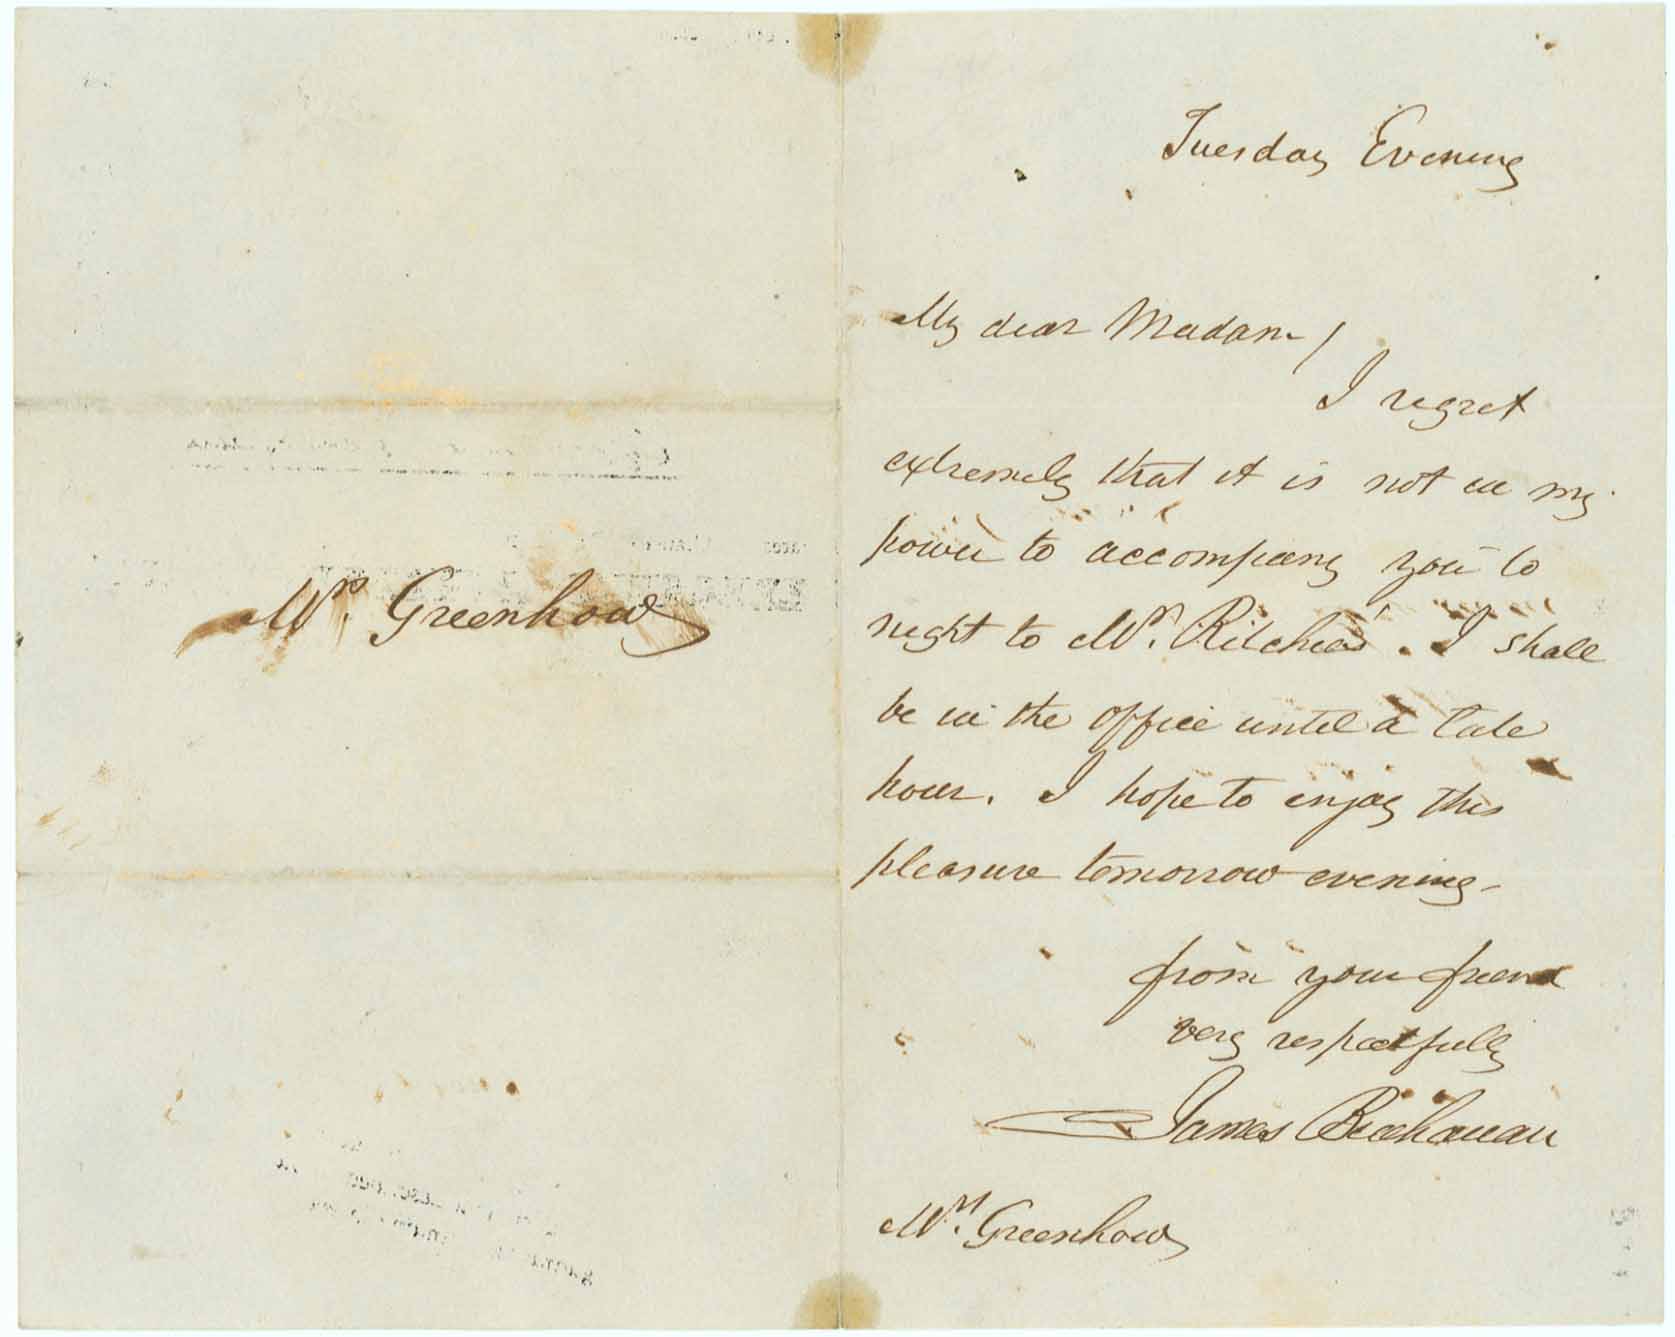 Mrs. Greenhow
Tuesday Evening
My dear Madam/
I regret
extremely that it is not in my
power to accompany you to
night to Mrs. Ritchies'. I shall
be in the office until a late
hour. I hope to enjoy this
pleasure tomorrow evening-
from your friend
very respectfully
James Buchanan
Mrs. Greenhow